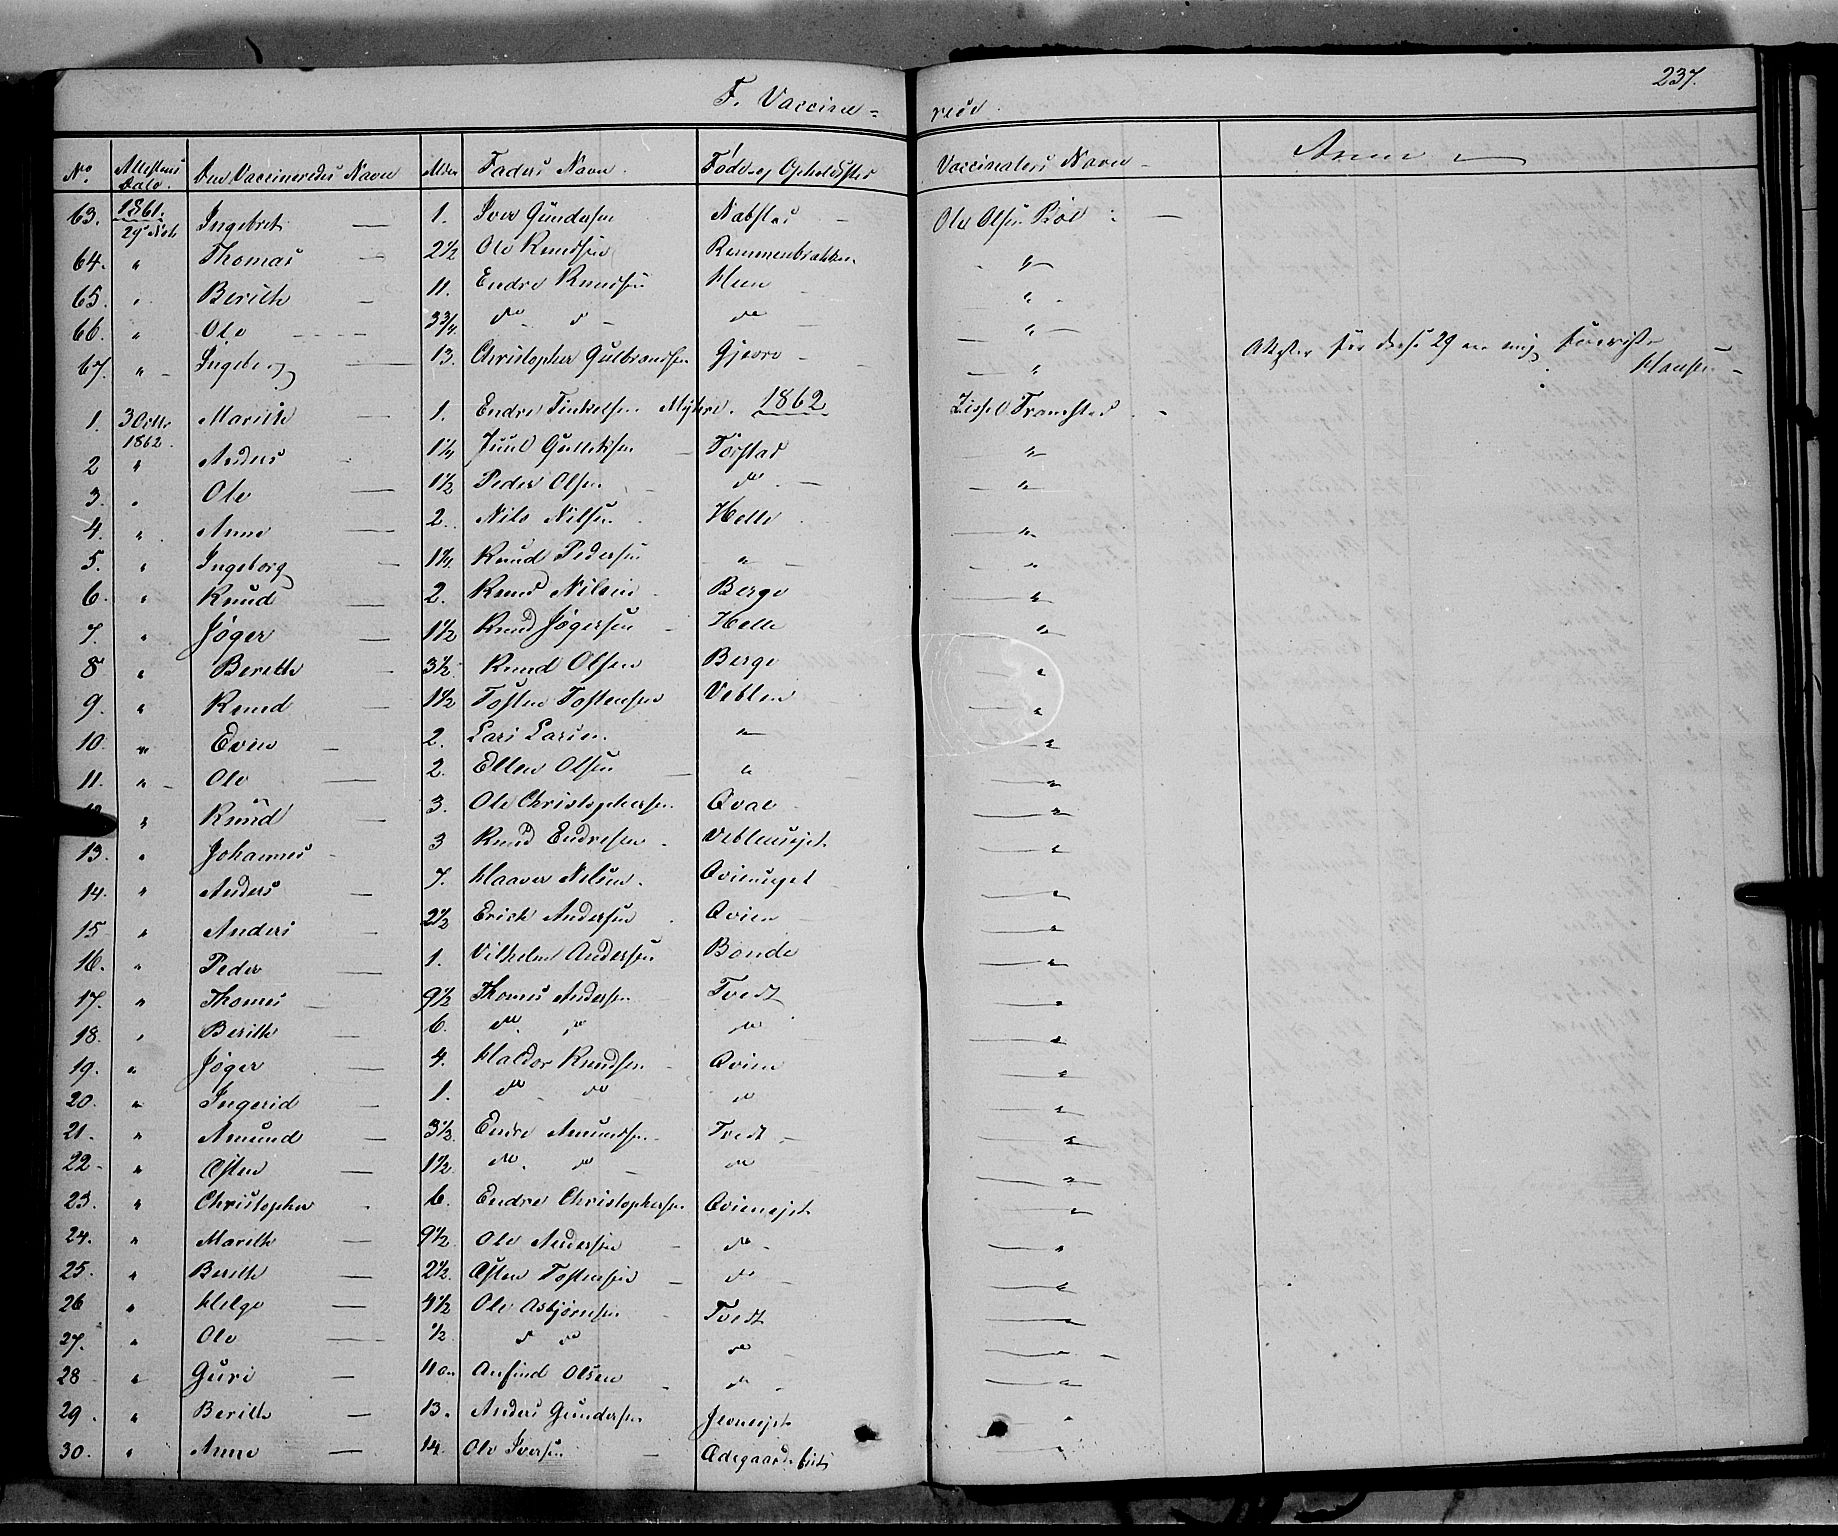 237.
F. Vaccine= rede.
No. Attestens Dato. Den Vaccineredes Navn Alder Faders Navn. Føde og Opholdssted Vaccinateurs Navn Anm
63. 1861. 29 Ingebret 1. Iver Gundersen Nabstad Ole Olsen
64. " Thomas 2½ Ole Knudsen "
65. " Berith 11. Endre Knudsen Hun "
66. " Ole 3¾. do do do "
67. " Ingeborg 13. Christopher Gulbrandsen Gjevre "
Attester for disse 29 mig foreviste
Hansen
1862
1. 3 Octbr 1862. Marith 1. Endre Tinkelsen Myhre. Sissel Tramstad
2 " Anders 1¼ Juul Gulleksen Førstad "
3. " Ole 1½ Peder Olsen do "
4. " Anne 2. Nils Nilsen Helle "
5. " Ingeborg 1¼ Knud Pedersen " "
6. " Knud 2. Knud Nilsen Berge "
7. " Jøger 1½ Knud Jøgersen Helle "
8 " Berith 3½ Knud Olsen Berge "
9. " Knud 1½ Tosten Tostensen Veblen "
10. " Even 2. Lars Larsen " "
11. " Ole 2. Ellen Olsen " "
" Knud 3. Ole Christophersen Qvale "
13. " Johannes 3 Knud Endresen Veblensejet "
14. " Anders 7. Haaver Nilsen Qviensejet "
15 " Anders 2½ Erick Andersen Qvien "
16. " Peder 1. Vilhelm Andersen Bonde "
17. " Thomas 9½ Thomas Andersen Tvedt "
18. " Berith 6. do do do "
19. " Jøger 4. Haldor Knudsen Qvien "
20. " Ingerid 1. do do do "
21. " Amund 3½. Endre Amundsen Tvedt "
22 " Østen 1½ do do do "
23. " Christopher 6. Endre Christophersen Qviensejet "
24. " Marith 9½ Ole Andersen do "
25. " Berith 2½. Østen Tostensen do "
26 " Helge 4½ Ole Asbjørnsen Tvedt "
27. " Ole ½ do do do "
28 " Guri Anfind Olsen do "
29 " Berith 13. Anders Gundersen "
30. " Anne 14. Ole Iversen "